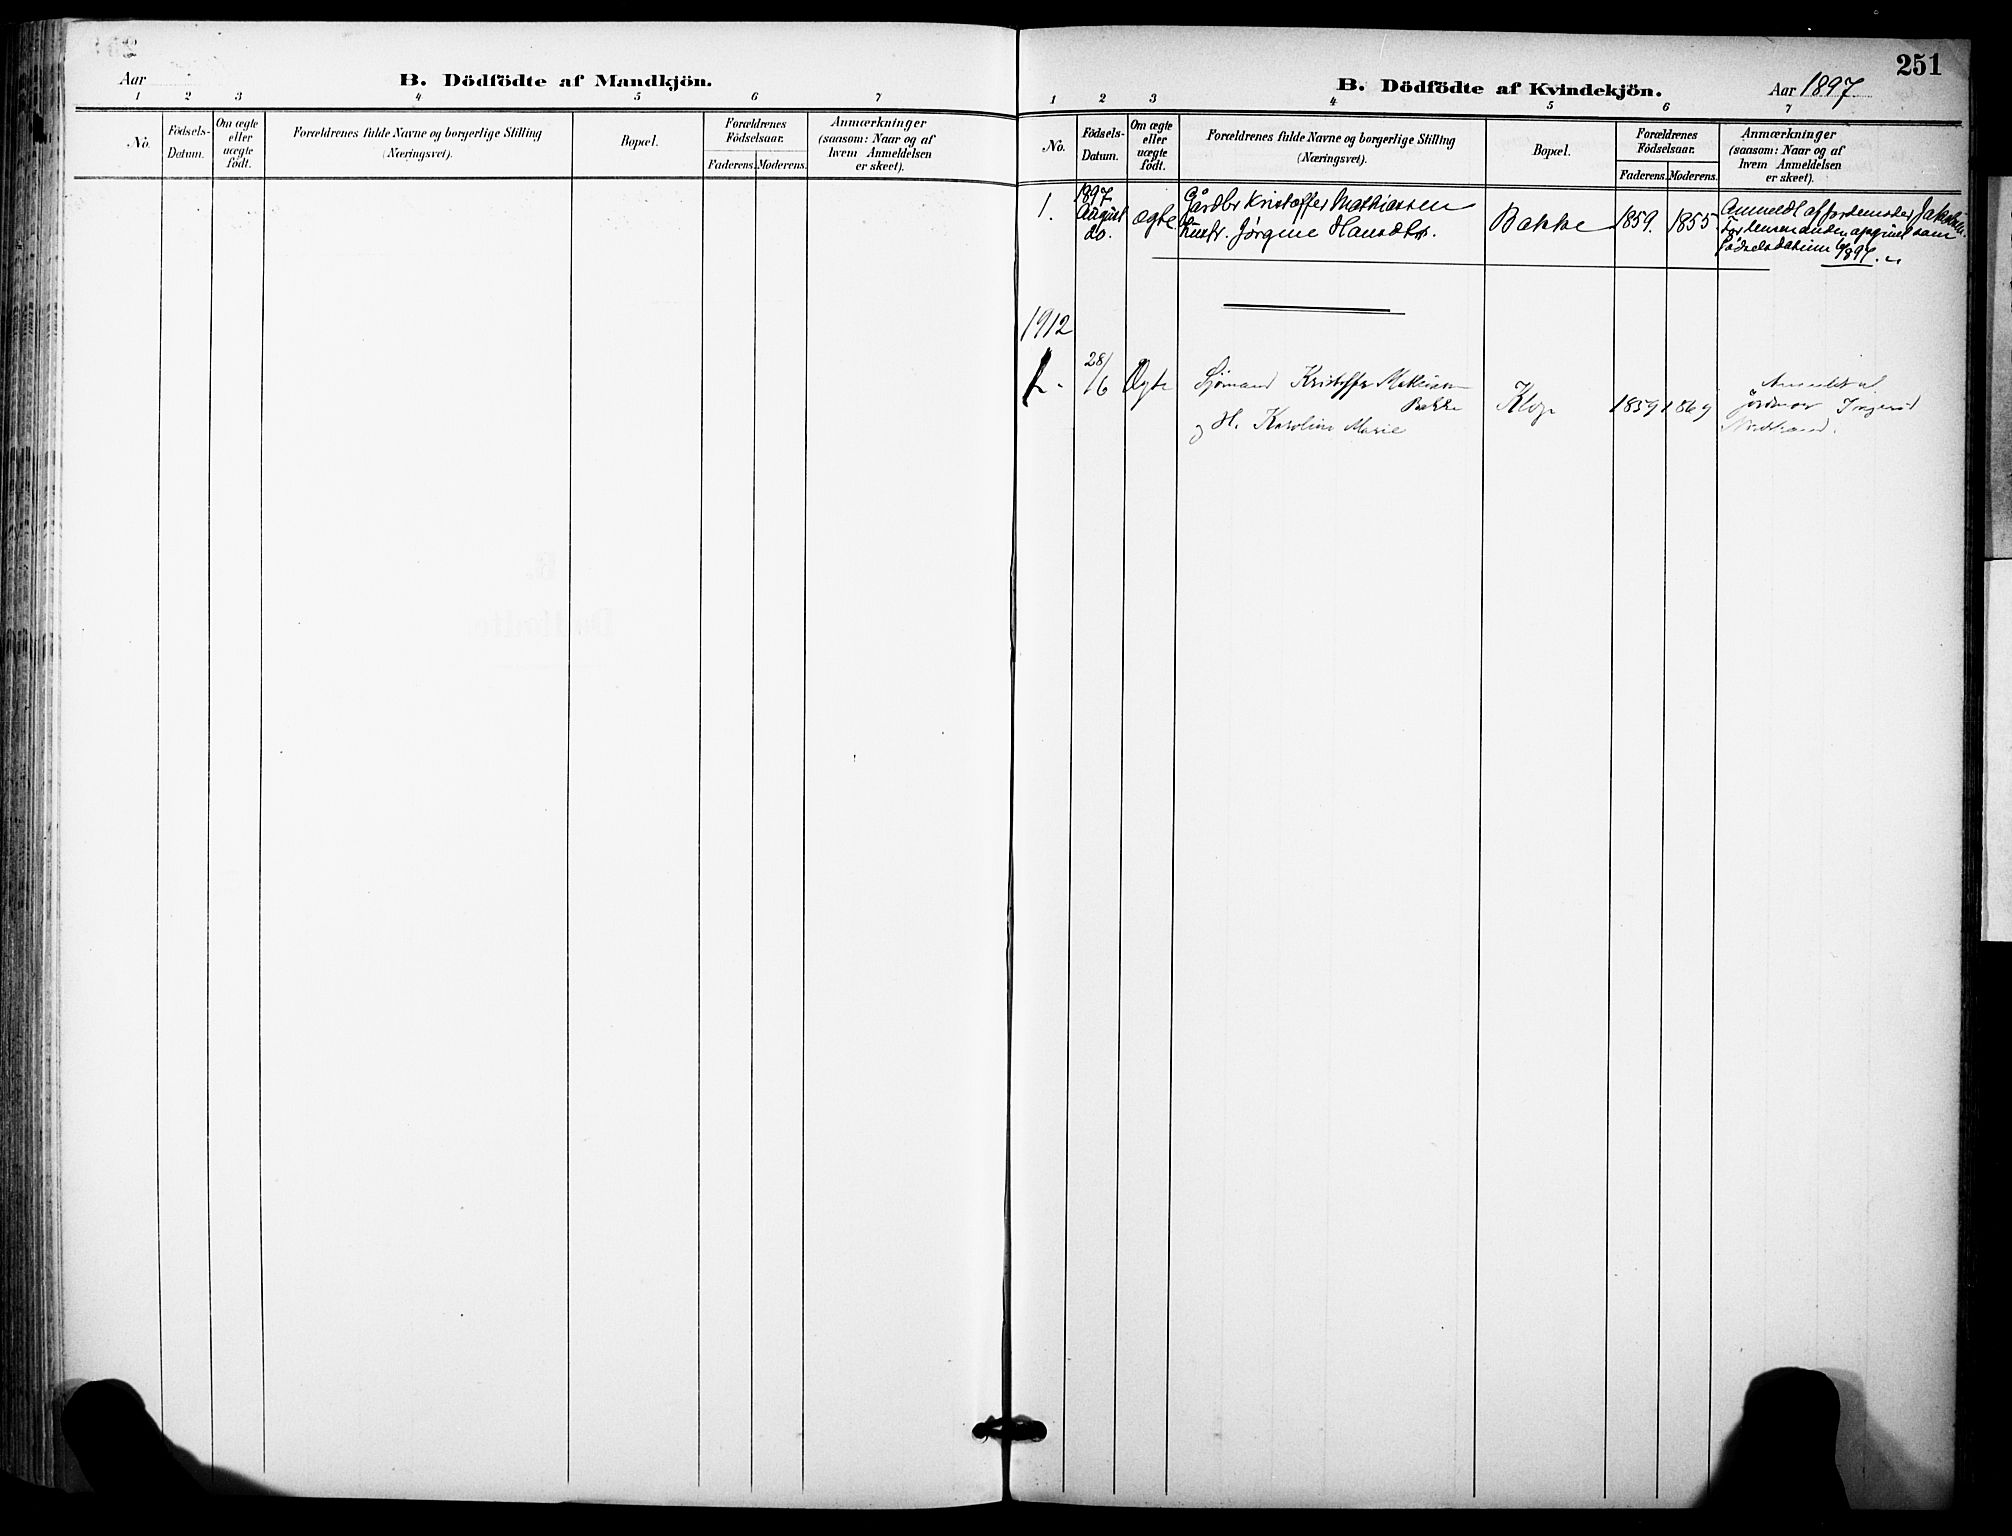 Aar
B. Dödfödte af Mandkjön.
1 2 3 4 5 6 7
No.
Födsels-
Datum.
Om ægte
eller
uægte
födt.
Forældrenes fulde Navne og borgerlige Stilling
(Næringsvei).
Bopæl.
Forældrenes
Födselsaar.
Faderens. Moderens.
Anmærkninger
(saasom: Naar og af
hvem Anmeldelsen
er skeet).
251
B. Dödfödte af Kvindekjön.
Aar 1897
1 2 3 4 5 6 7
No.
Födsels-
Datum.
Om ægte
eller
uægte
födt.
Forældrenes fulde Navne og borgerlige Stilling
(Næringsvei).
Bopæl.
Forældrenes
Födselsaar.
Faderens. Moderens.
Anmærkninger
(saasom: Naar og af
hvem Anmeldelsen
er skeet).
1.
1897
August
20.
Ægte
Gårdbr Kristoffer Mathiassen
Hustr. Jørgine Hansdtr.
Bakke
1859.
1855
Anmeldt af jordemoder Jakobsen.
som
Fødselsdatum
1897.
1912
1.
28/6
Ægte
Sjømand Kristoffer Mathiassen
Bakke
og H. Karoline Marie
1859
1869
Anmeldt af
Jordmor